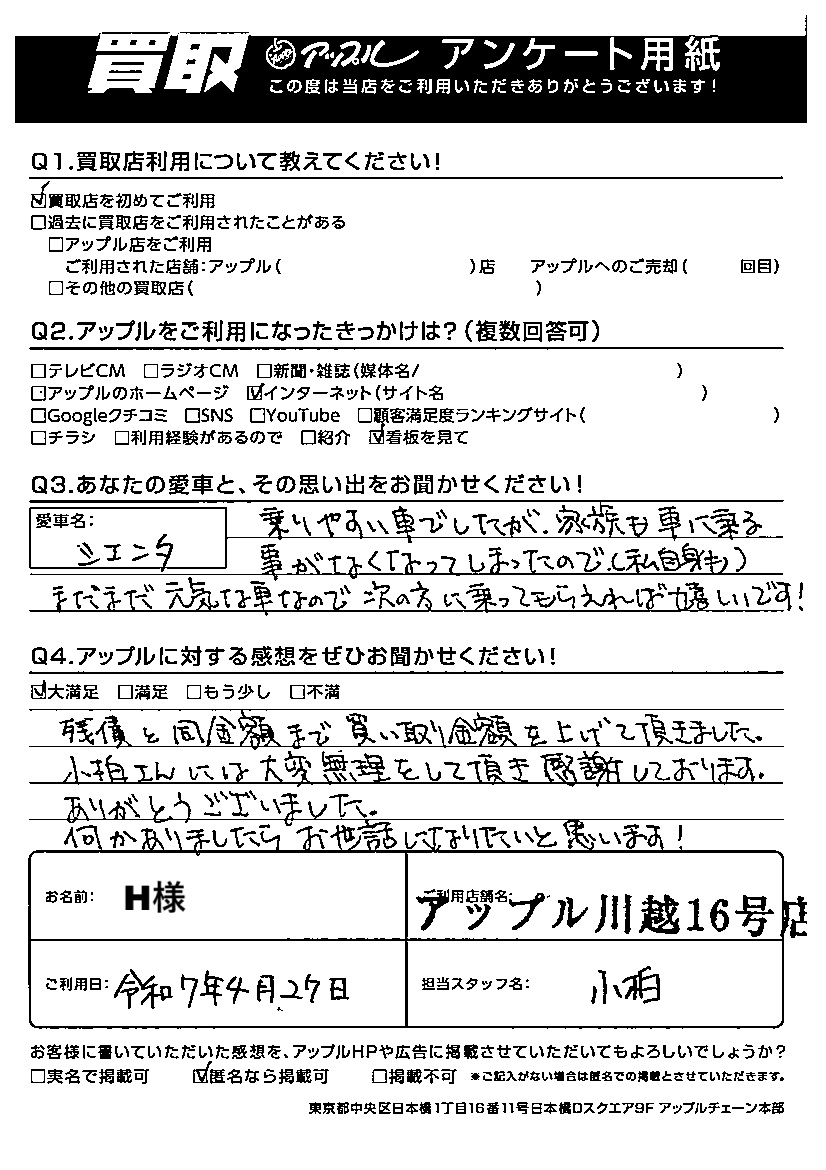 買取 アップル アンケート用紙
この度は当店をご利用いただきありがとうございます!
Q1.買取店利用について教えてください!
☑買取店を初めてご利用
□過去に買取店をご利用されたことがある
□アップル店をご利用
ご利用された店舗:アップル( )店 アップルへのご売却( 回目)
□その他の買取店( )
Q2.アップルをご利用になったきっかけは?(複数回答可)
□テレビCM □ラジオCM □新聞・雑誌(媒体名/ )
□アップルのホームページ ☑インターネット(サイト名 )
□Googleクチコミ □SNS □YouTube □顧客満足度ランキングサイト( )
□チラシ □利用経験があるので □紹介 ☑看板を見て
Q3.あなたの愛車と、その思い出をお聞かせください!
愛車名:
シエンタ
乗りやすい車でしたが、家族も車に乗る
事がなくなってしまったので、(私自身も)
まだまだ元気な車なので次の方に乗ってもらえれば嬉しいです!
Q4.アップルに対する感想をぜひお聞かせください!
☑大満足 □満足 □もう少し □不満
残債と同金額まで買い取り金額を上げて頂きました。
小柏さんには大変無理をして頂き感謝しております。
ありがとうございました。
何かありましたらお世話になりたいと思います!
お名前: H様
ご利用店舗名:
アップル川越16号店
ご利用日: 令和7年4月27日
担当スタッフ名: 小柏
お客様に書いていただいた感想を、アップルHPや広告に掲載させていただいてもよろしいでしょうか?
□実名で掲載可 ☑匿名なら掲載可 □掲載不可 ※ご記入がない場合は匿名での掲載とさせていただきます。
東京都中央区日本橋1丁目16番11号日本橋Dスクエア9F アップルチェーン本部